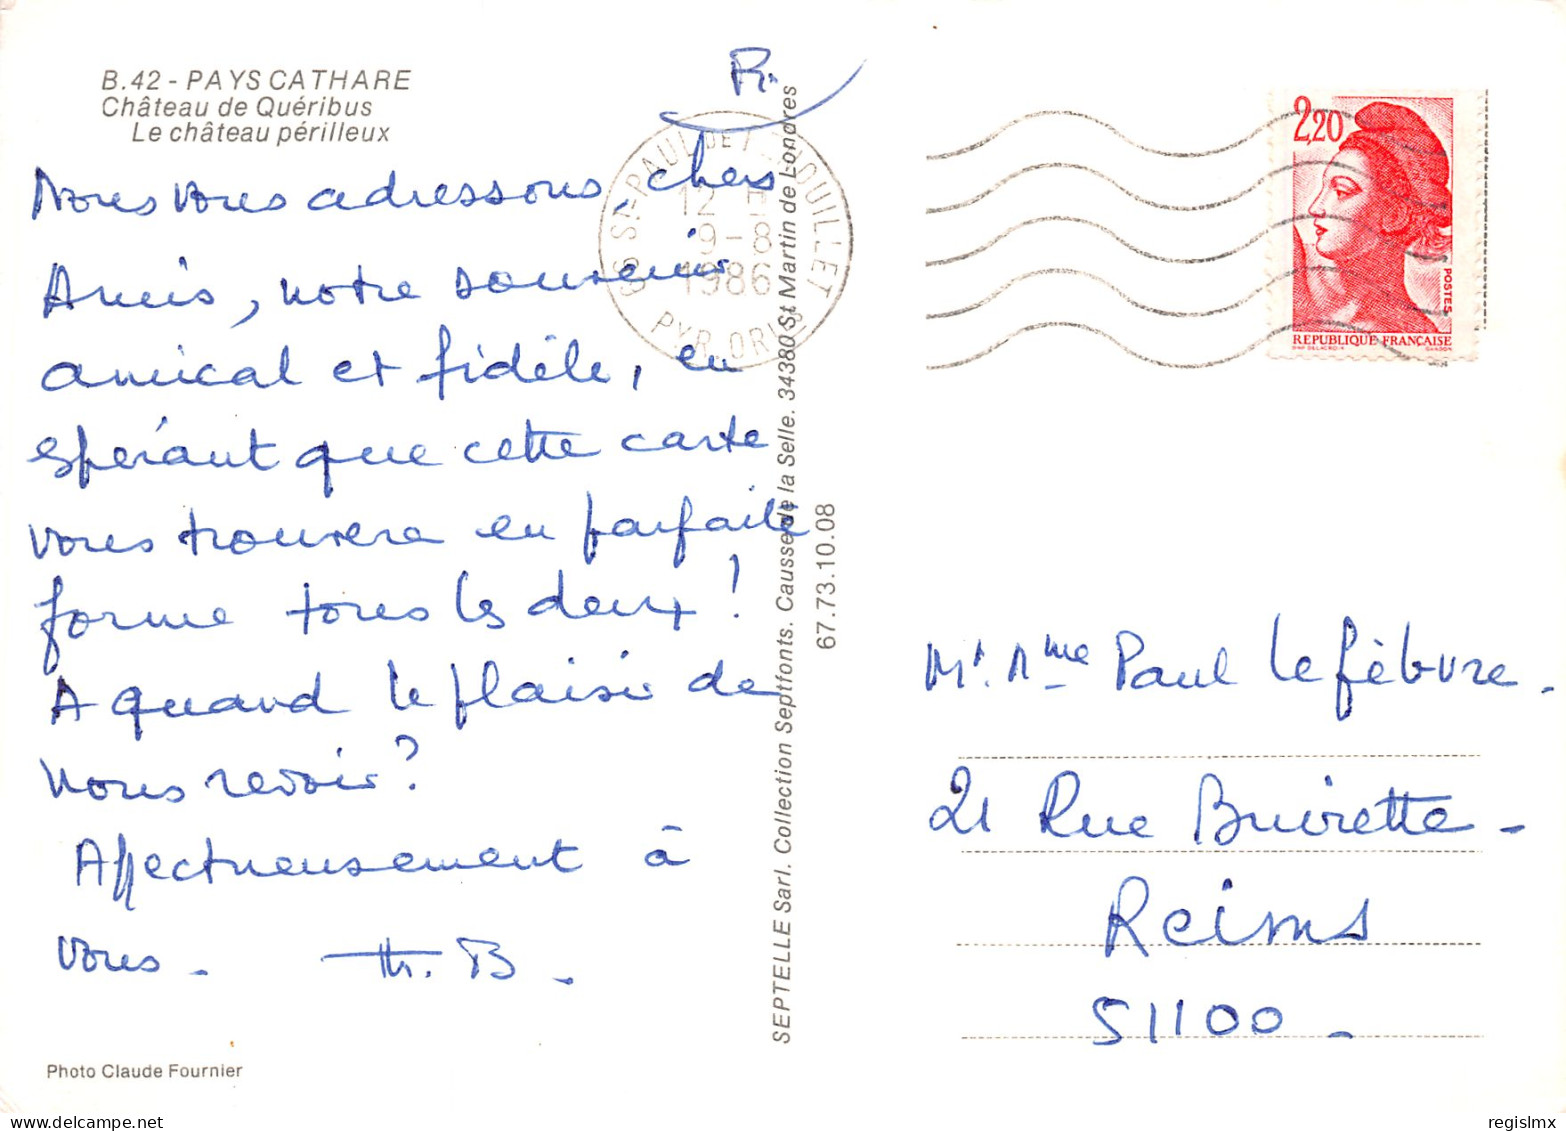 B.42 - PAYS CATHARE
Château de Quéribus
Le château périlleux
Nous vous adressons, chers
Amis, notre souvenir
amical et fidèle, en
espérant que cette carte
vous trouvera en parfaite
forme tous les deux !
A quand le plaisir de
nous revoir ?
Affectueusement à
vous. Th. B.
Photo Claude Fournier
SEPTELLE Sarl. Collection Septfonts. Causse de la Selle. 34380 St Martin de Londres
67.73.10.08
ST-PAUL DE FENOUILLET
12
9-8
1986
PYR. ORLES
2,20
POSTES
REPUBLIQUE FRANÇAISE
Mr. Mme Paul Lefèbvre.
21 Rue Buirette -
Reims
51100 -
regislmx